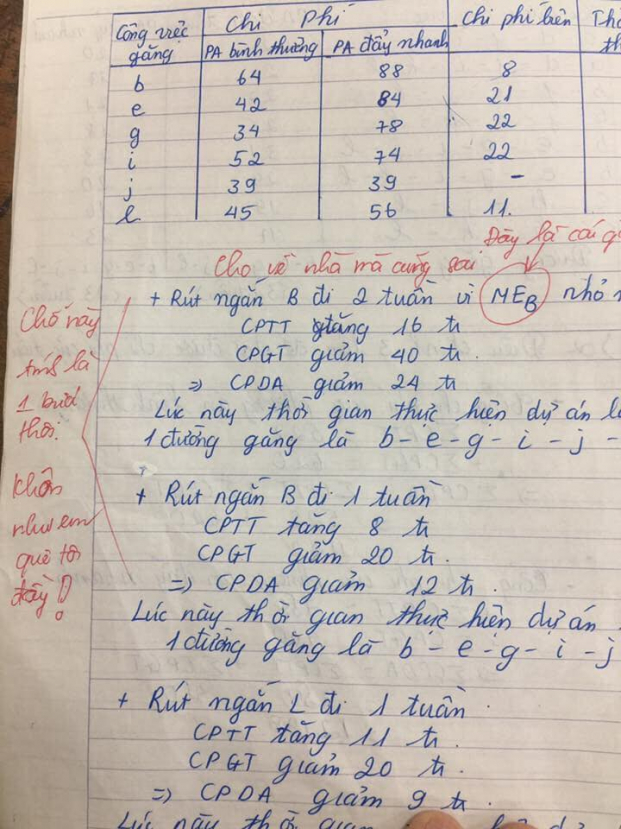 Công việc găng | Chi Phí | Chi phí biên
PA bình thường | PA đẩy nhanh
b 64 88 8
e 42 84 21
g 34 78 22
i 52 74 22
j 39 39 -
l 45 56 11.
Đây là cái
Cho về nhà mà cũng sai
+ Rút ngắn B đi 2 tuần vì MEB nhỏ
CPTT tăng 16 tr
CPGT giảm 40 tr.
=> CPDA giảm 24 tr
Lúc này thời gian thực hiện dự án
1 đường găng là b - e - g - i - j -
Chỗ này
tính là
1 bước
thôi.
như em
đây!
+ Rút ngắn B đi 1 tuần
CPTT tăng 8 tr
CPGT giảm 20 tr.
=> CPDA giảm 12 tr.
Lúc này thời gian thực hiện dự án
1 đường găng là b - e - g - i - j
+ Rút ngắn L đi 1 tuần.
CPTT tăng 11 tr.
CPGT giảm 20 tr.
=> CPDA giảm 9 tr.
Lúc này thời gian